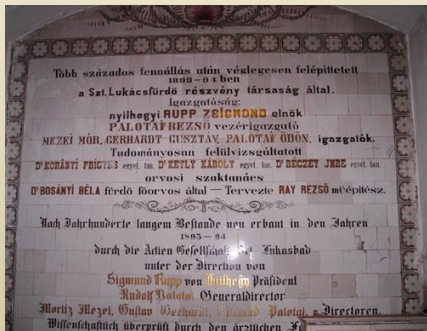 Több százados fennállás után véglegesen felépittetett
1893-94 ben
a Szt. Lukácsfürdő részvény társaság által.
Igazgatóság:
nyilhegyi RUPP ZSIGMOND elnök
PALOTAI REZSŐ vezérigazgató
MEZEI MÓR, GERHARDT GUSZTÁV, PALOTAI ÖDÖN, igazgatók.
Tudományosan felülvizsgáltatott
Dr KORÁNYI FRIGYES egyet. tan. Dr KETLY KÁROLY egyet. tan. Dr RÉCZEY IMRE egyet. tan.
orvosi szaktanács
Dr BOSÁNYI BÉLA fürdő főorvos által — Tervezte RAY REZSŐ műépitész.
Nach Jahrhunderte langem Bestande neu erbaut in den Jahren
1893-94
durch die Actien Gesellschaft Lukasbad
unter der Direction von
Sigmund Rupp von Präsident
Rudolf Palotai Generaldirector
Moritz Mezei, Gustav Gerhardt, Palotai, Directoren.
Wissenschaftlich überprüft durch den ärztlichen